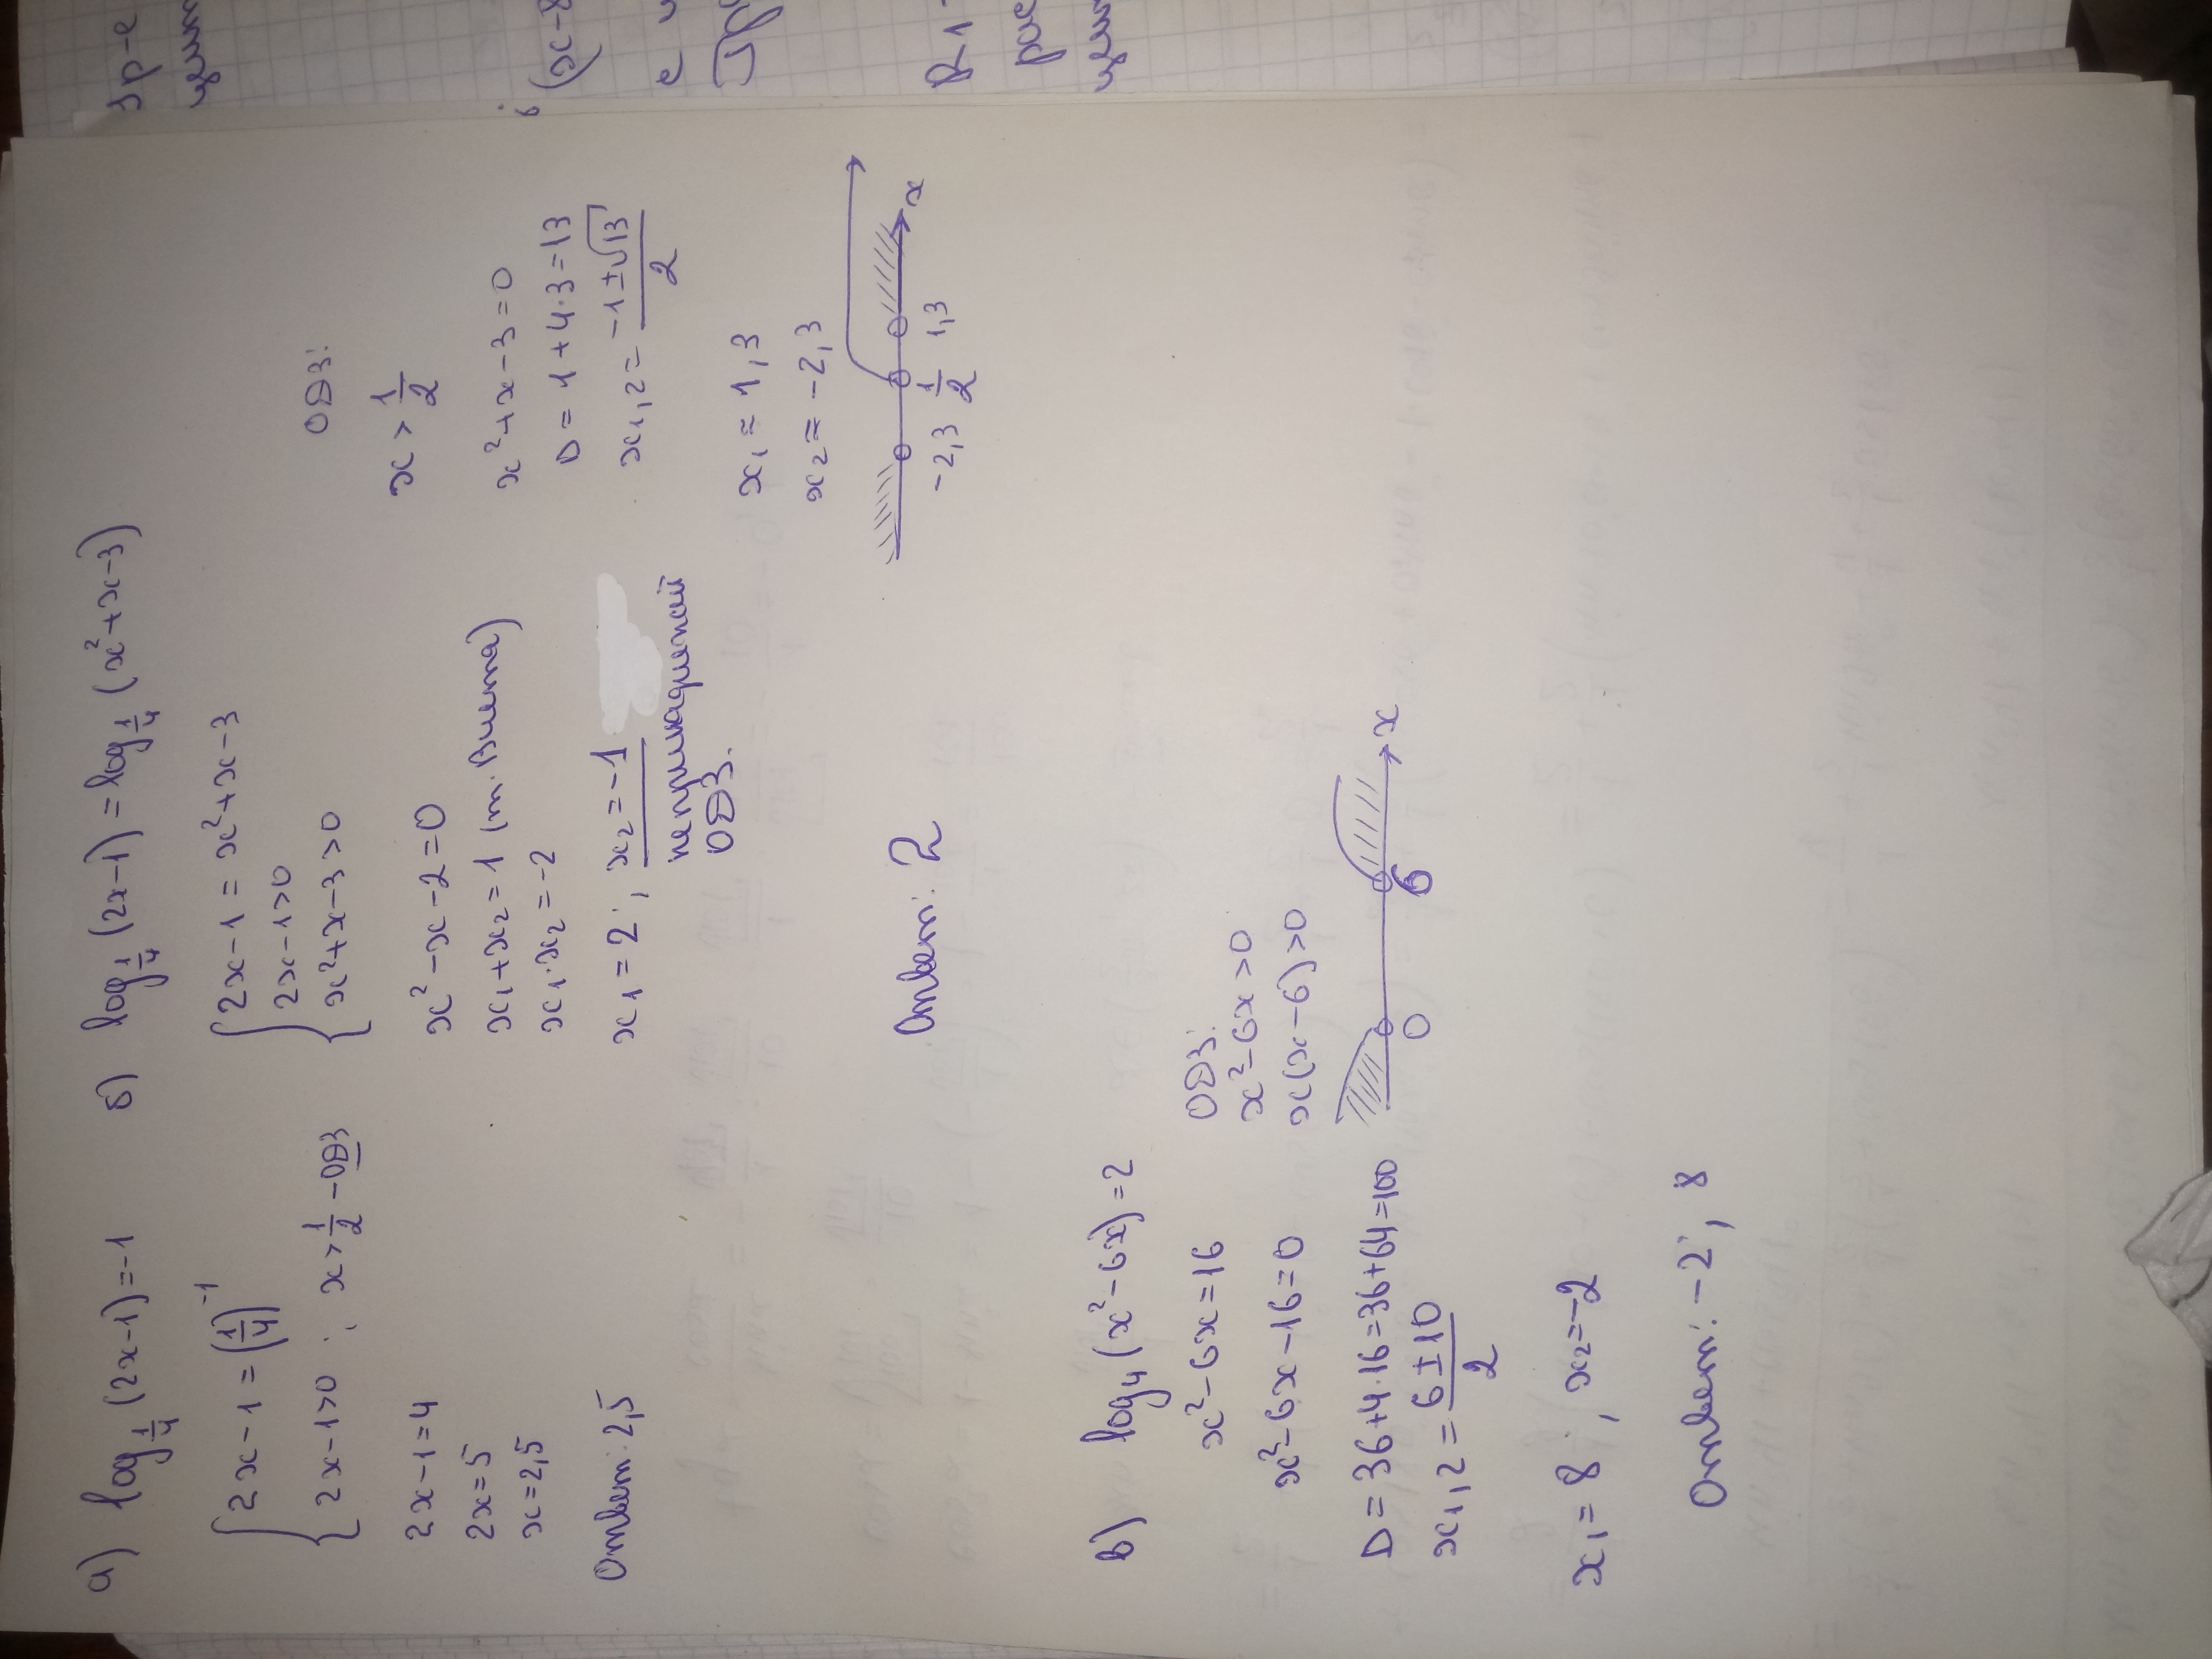 а) log_{1/4} (2x-1) = -1
{ 2x-1 = (1/4)^{-1}
2x-1>0 ; x > 1/2 - ОДЗ
2x-1=4
2x=5
x=2,5
Ответ: 2,5
б) log_{1/4} (2x-1) = log_{1/4} (x²+x-3)
{ 2x-1 = x²+x-3
2x-1>0
x²+x-3>0
x²-x-2=0
x₁+x₂=1 (т. Виета)
x₁·x₂=-2
x₁=2 ; x₂=-1
ОДЗ.
Ответ: 2
ОДЗ:
x > 1/2
x²+x-3=0
D = 1+4·3=13
x₁,₂ = (-1±√13)/2
x₁ ≈ 1,3
x₂ ≈ -2,3
-2,3 1/2 1,3 x
в) log₄ (x²-6x)=2
x²-6x=16
x²-6x-16=0
D=36+4·16=36+64=100
x₁,₂ = (6±10)/2
x₁=8 ; x₂=-2
Ответ: -2 ; 8
ОДЗ:
x²-6x>0
x(x-6)>0
0 6 x